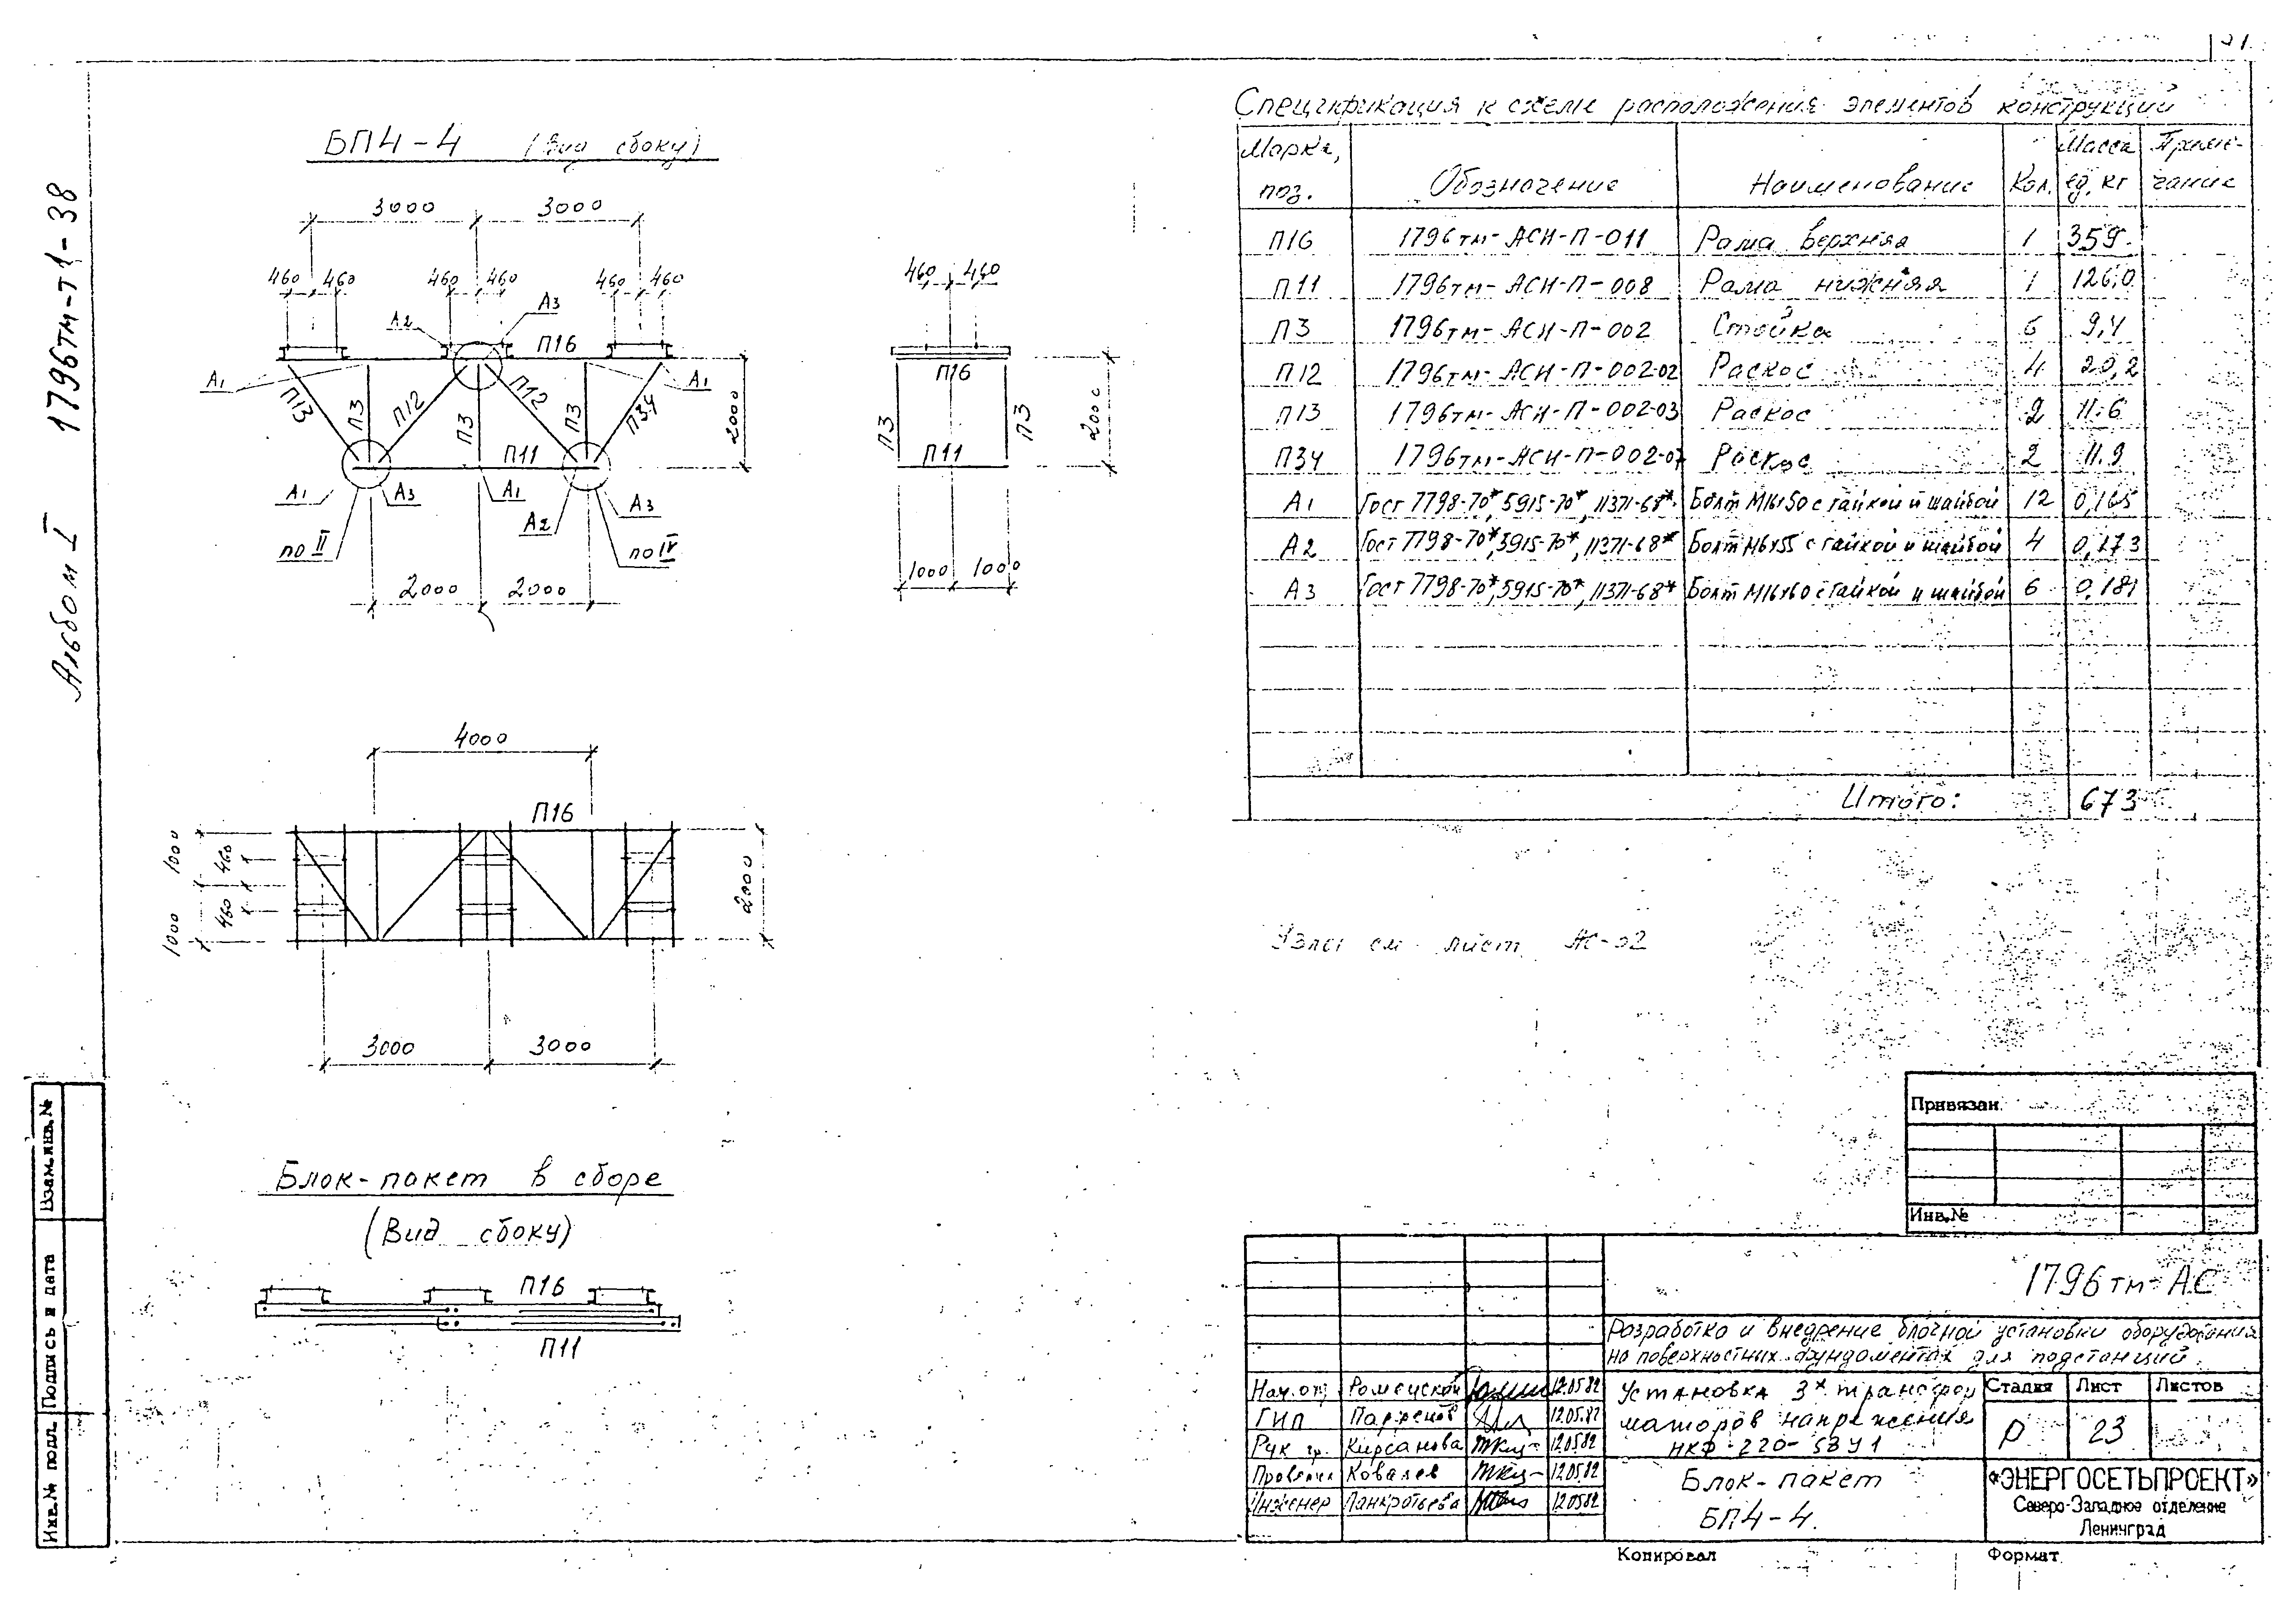 Альбом I 1796тм-т1-38
БП4-4 (Вид сбоку)
3000 3000
460 460 460 460 460 460
А2 А3
П16
А1 А1
П13 П3 П12 П3 П12 П3 П34
2000
П11
А1 А3 А1 А2 А3
по II по IV
2000 2000
460 460
П16
П3 П3
2000
П11
1000 1000
4000
П16
1000 460
1000 460
2000
3000 3000
Блок-пакет в сборе
(Вид сбоку)
П16
П11
Спецификация к схеме расположения элементов конструкций
Марка, поз. Обозначение Наименование Кол. Масса ед, кг Примечание
П16 1796тм-АСИ-П-011 Рама верхняя 1 359.
П11 1796тм-АСИ-П-008 Рама нижняя 1 126,0
П3 1796тм-АСИ-П-002 Стойка 6 9,4
П12 1796тм-АСИ-П-002-02 Раскос 4 20,2
П13 1796тм-АСИ-П-002-03 Раскос 2 11.6
П34 1796тм-АСИ-П-002-07 Раскос 2 11.9
А1 Гост 7798-70*, 5915-70*, 11371-68* Болт М16х50 с гайкой и шайбой 12 0,165
А2 Гост 7798-70*, 5915-70*, 11371-68* Болт М16х55 с гайкой и шайбой 4 0,173
А3 Гост 7798-70*, 5915-70*, 11371-68* Болт М16х60 с гайкой и шайбой 6 0,181
Итого: 673
Узлы см лист АС-32
Привязан
Инв.№
1796тм-АС
Разработка и внедрение блочной установки оборудования
на поверхностных фундаментах для подстанций.
Нач.отд Роменский 12.05.82
ГИП Парфенов 12.05.82
Рук гр. Кирсанова 12.05.82
Проверил Ковалев 12.05.82
Инженер Панкратьева 12.05.82
Установка 3х трансфор
маторов напряжения
НКФ-220-58У1
Стадия Лист Листов
Р 23
Блок-пакет
БП4-4.
«ЭНЕРГОСЕТЬПРОЕКТ»
Северо-Западное отделение
Ленинград
Копировал Формат
Взам.инв.№
Подпись и дата
Инв.№ подл.